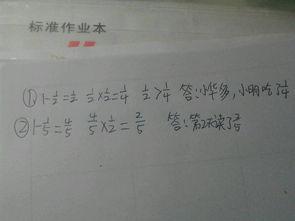 标准作业本
① 1-½=½ ½×½=¼ ½>¼ 答:小华多,小明吃了¼
② 1-⅕=⅘ ⅘×½=⅖ 答:第2天读了⅖